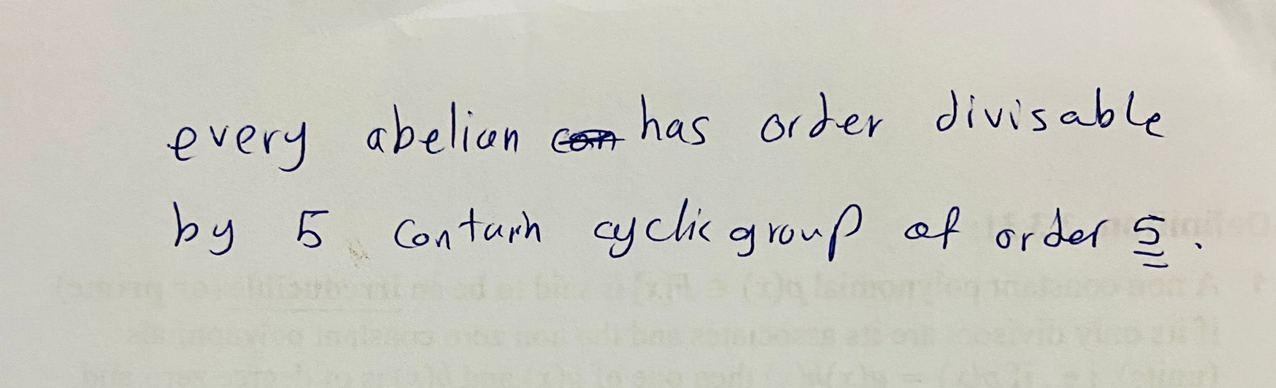 every abelian has order divisable
by 5 contain cyclic group of order 5.